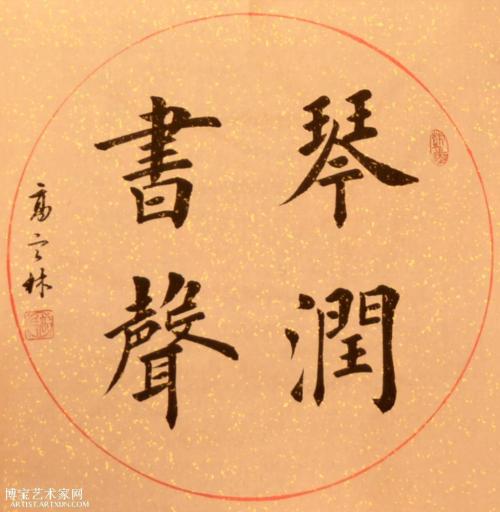 琴潤
書聲
博宝艺术家网
ARTIST.ARTXUN.COM